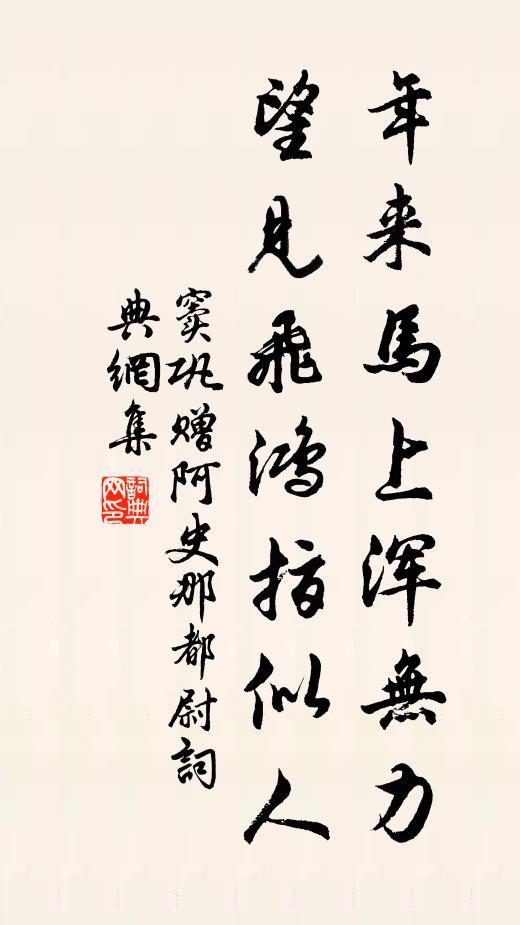 年来馬上浑無力
望見飛鴻指似人
窦巩赠阿史那都尉詞
典網集
詞典
网印